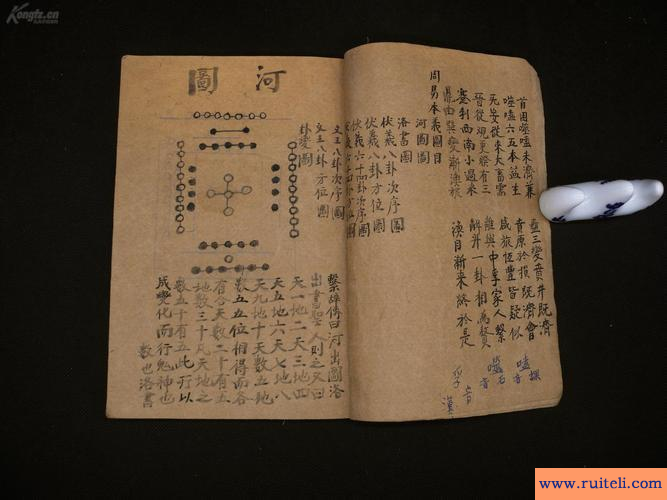 首困噬嗑未濟兼 蠱三變賁井既濟
噬嗑六五本益生 賁原於損既濟會
无妄從來大畜需 咸旅恆豐皆疑似
晉從觀更睽有三 離與中孚家人繫
蹇利西南小過來 解升一卦相為贅
鼎由巽變漸渙旅 渙目漸來終於是
嗑音
噬石音
孚音
周易本義圖目
河圖圖
洛書圖
伏羲八卦次序圖
伏羲八卦方位圖
伏羲六十四卦次序圖
文王八卦次序圖
文王八卦方位圖
卦變圖
河圖
繫辭傳曰河出圖洛
出書聖人則之又曰
天一地二天三地四
天五地六天七地八
天九地十天數五地
數五五位相得而各
有合天數二十有五
地數三十凡天地之
數五十有五此所以
成變化而行鬼神也
數也洛書
Kongfz.cn
www.ruiteli.com